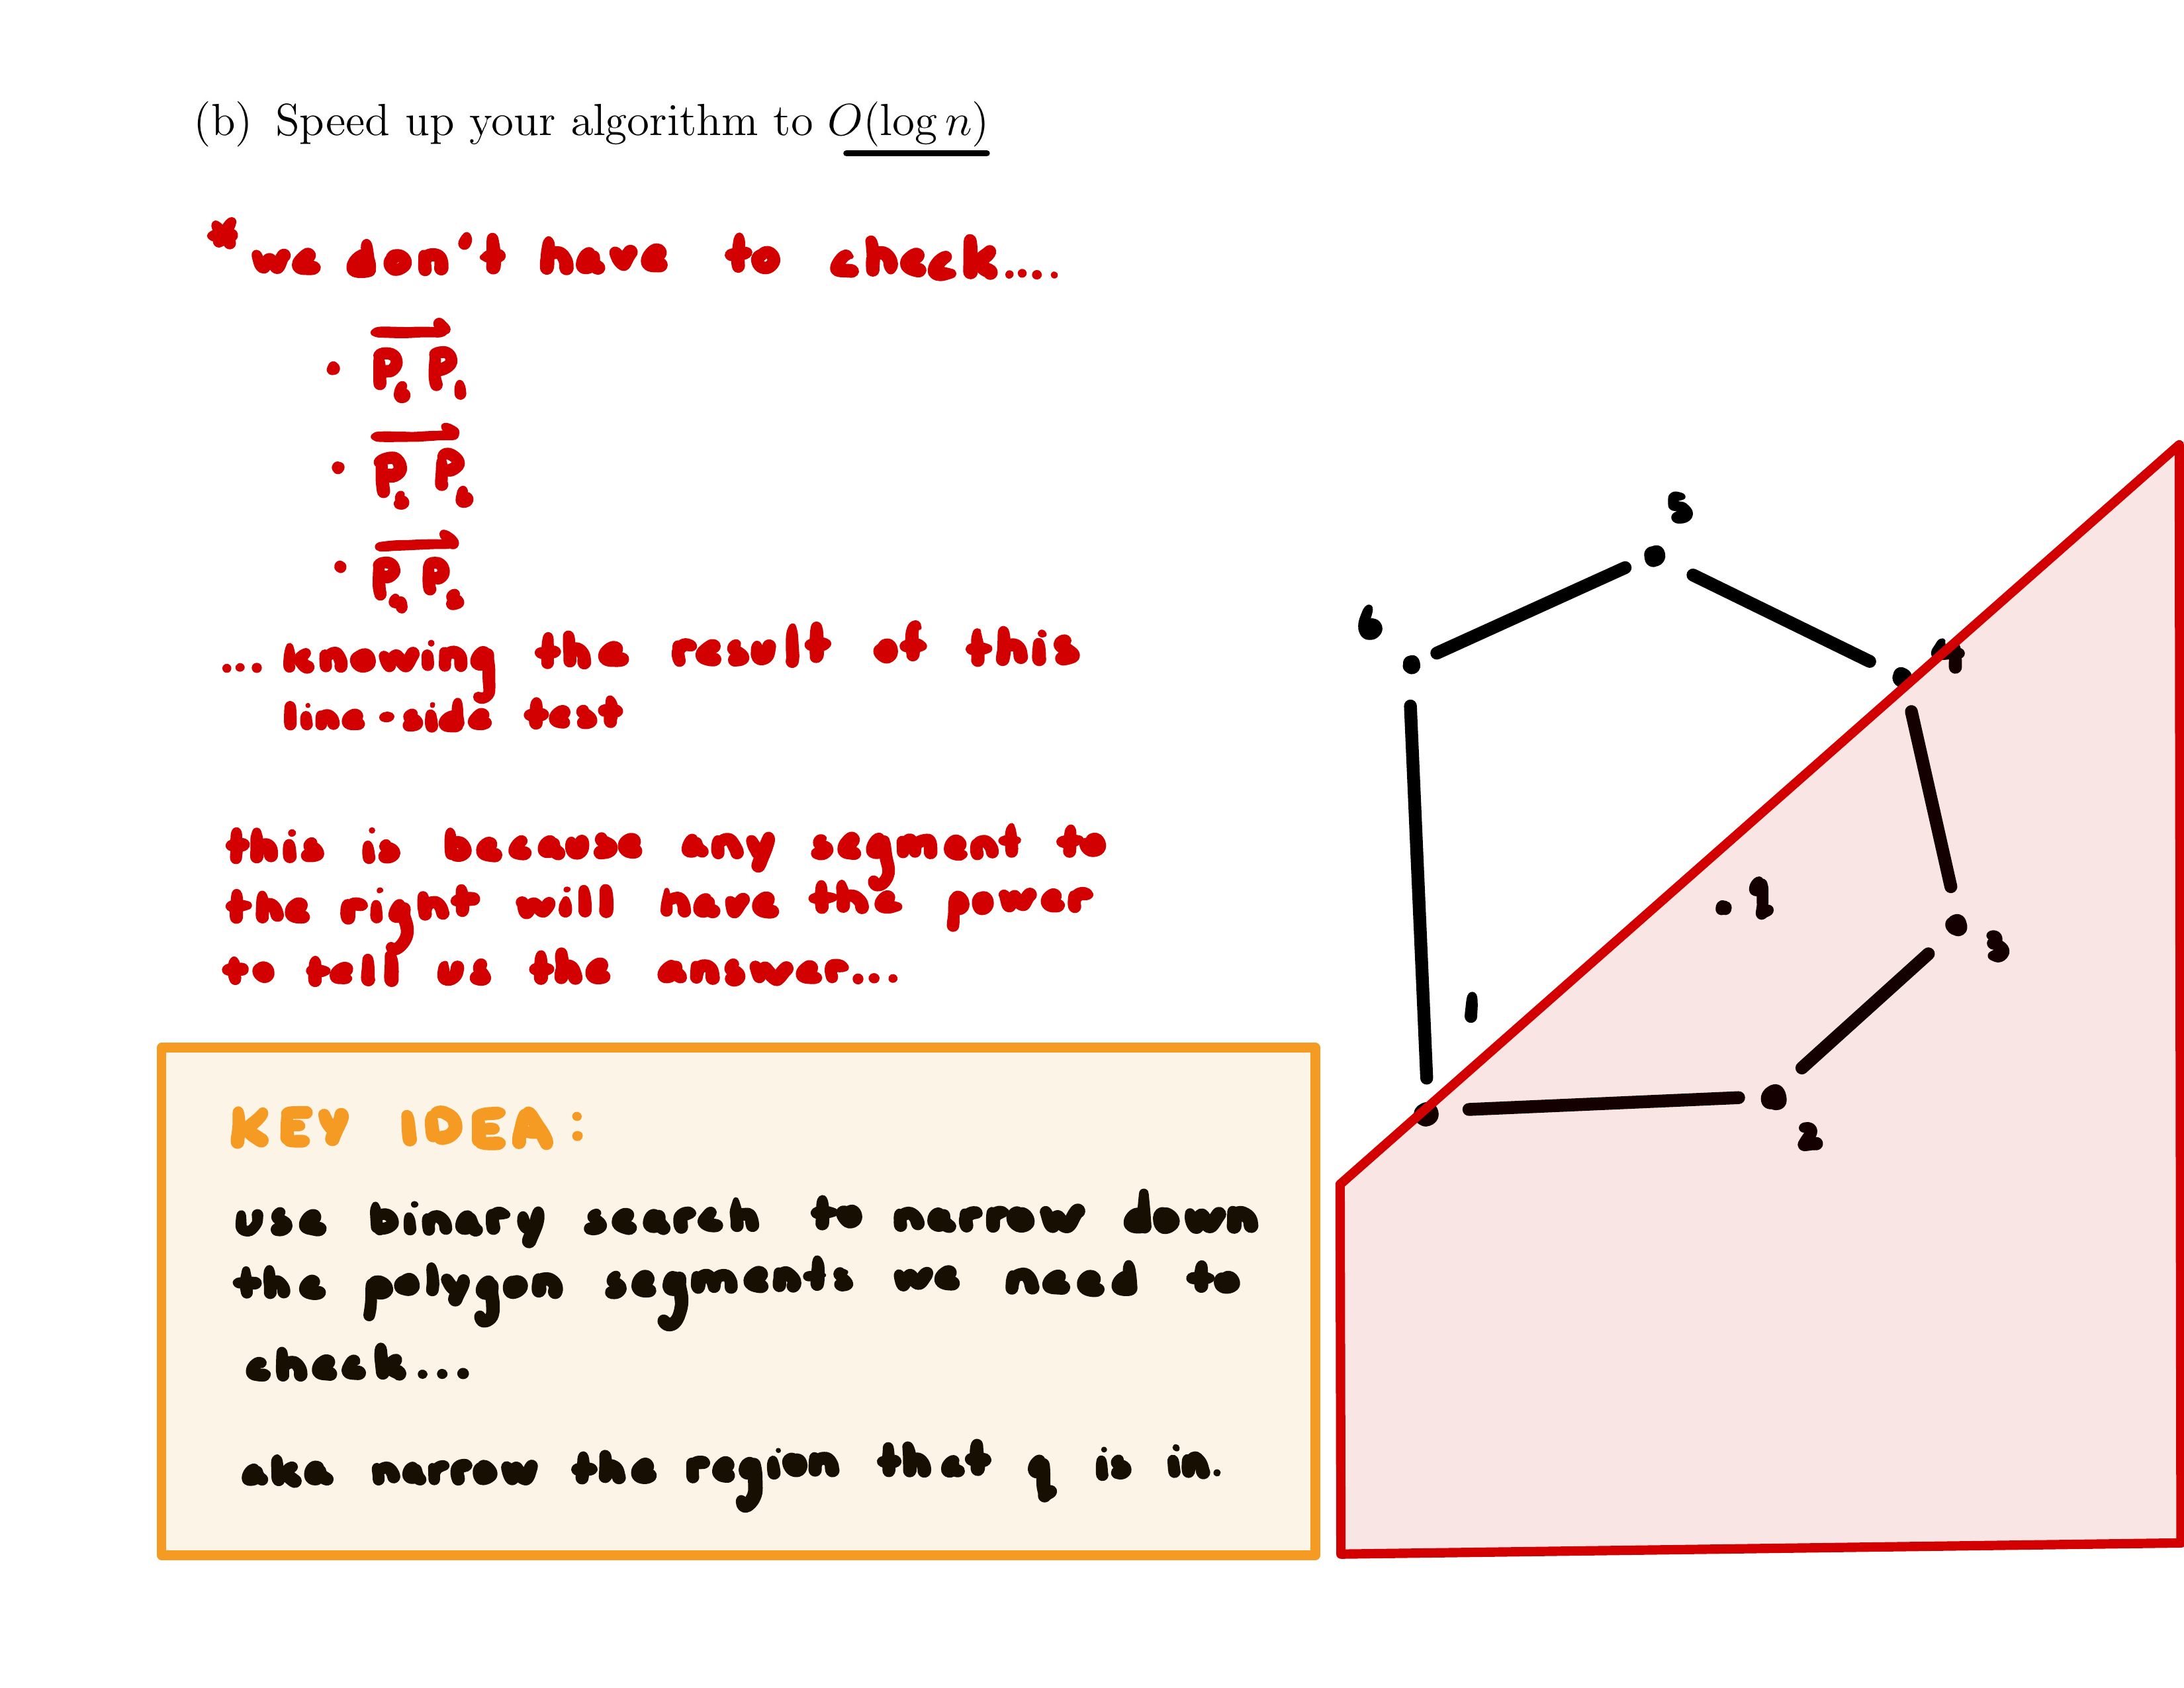 (b) Speed up your algorithm to O(log n)
*we don't have to check....
· P₆P₁
· P₅P₆
· P₄P₅
... knowing the result of this
line-side test
this is because any segment to
the right will have the power
to tell us the answer...
KEY IDEA:
use binary search to narrow down
the polygon segments we need to
check...
aka narrow the region that q is in.
5
6
4
q
3
1
2